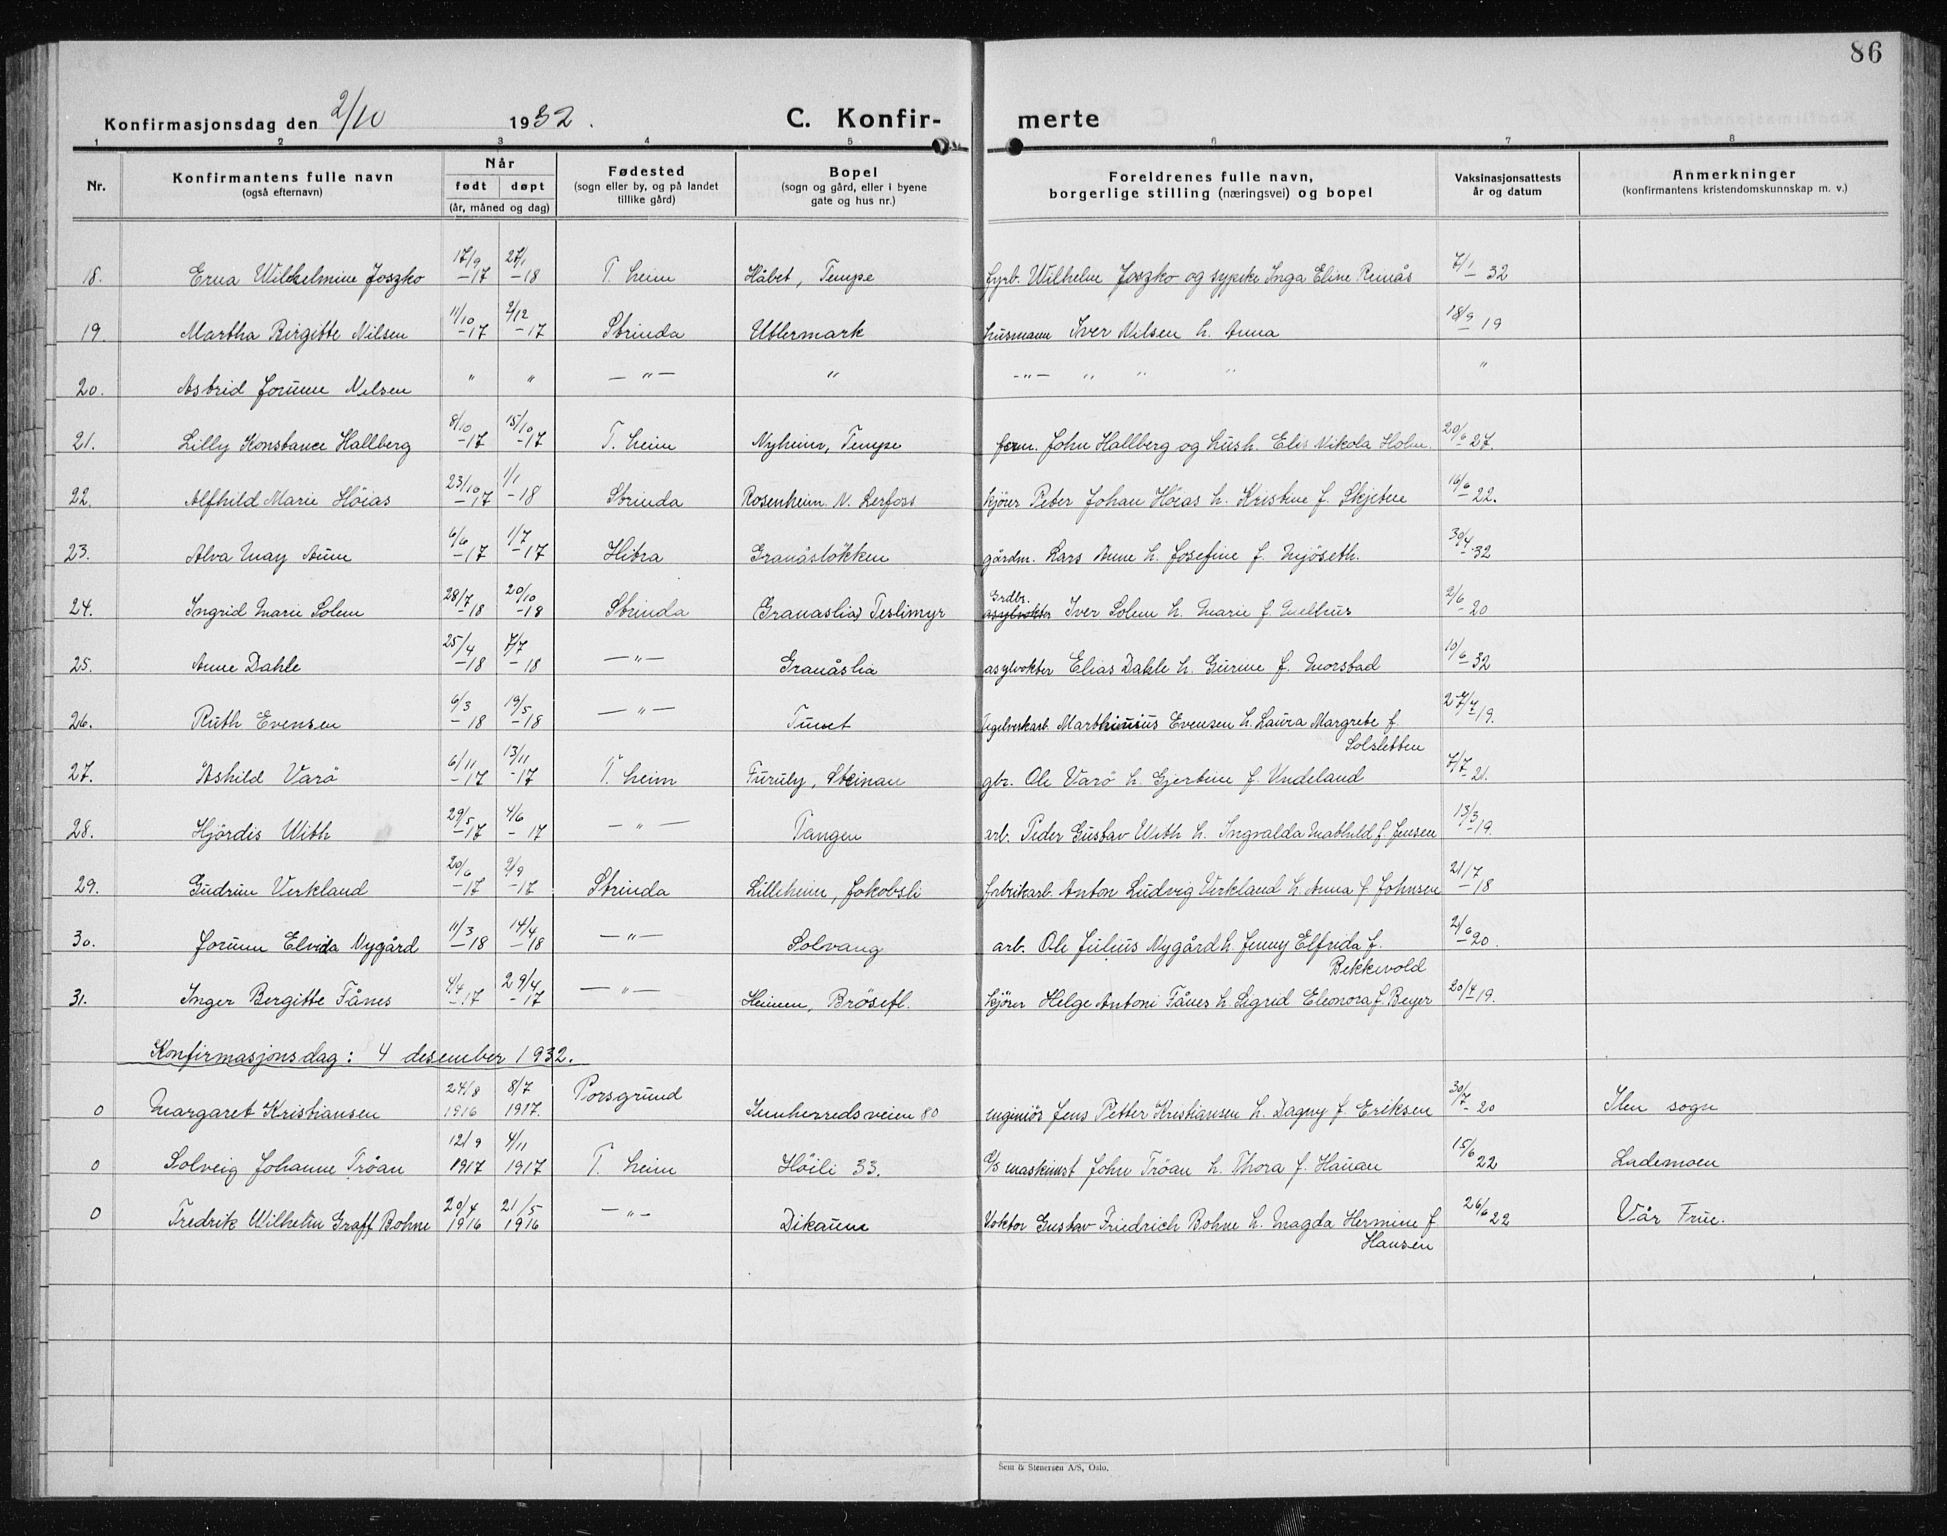 86
Konfirmasjonsdag den 2/10 1932. C. Konfir- merte
1 2 3 4 5 6 7 8
Nr. Konfirmantens fulle navn (også efternavn) Når født døpt (år, måned og dag) Fødested (sogn eller by, og på landet tillike gård) Bopel (sogn og gård, eller i byene gate og hus nr.) Foreldrenes fulle navn, borgerlige stilling (næringsvei) og bopel Vaksinasjonsattests år og datum Anmerkninger (konfirmantens kristendomskunnskap m. v.)
18. Erna Wilhelmine Joszko 17/9 -17 27/1 -18 T.heim Håbet, Tempe fyrb. Wilhelm Joszko og sypike Inga Eline Reinås 7/1 32
19. Martha Bergitte Nilsen 11/10 -17 2/12 -17 Strinda Utlermark husmann Iver Nilsen h. Anna 18/9 19
20. Astrid Jorunn Nilsen " " — " — " -"- " " " "
21. Lilly Konstance Hallberg 8/10 -17 15/10 -17 T.heim Nyheim, Tempe form. John Hallberg og hush. Elis Nikola Holm. 20/6 27.
22. Alfhild Marie Höias 23/10 -17 1/1 -18 Strinda Rosenheim N. Lerfoss kjörer Peter Johan Höias h. Kristine f. Skjetne 16/6 22.
23. Alva May Aune 6/6 -17 1/7 -17 Hitra Granåsløkken gårdm. Lars Aune h. Josefine f. Mjöseth. 30/4 32
24. Ingrid Marie Solem 28/7 -18 20/10 -18 Strinda Granaslia, Teslimyr Grdbr. asylvokter Iver Solem h. Marie f. Melhus 2/6 20
25. Anne Dahle 25/4 -18 7/7 -18 — " — Granåslia asylvokter Elias Dahle h. Gurine f. Morstad 10/6 32
26. Ruth Evensen 6/3 -18 19/5 -18 — " — Tunet Teglverkarb. Marthinius Evensen h. Laura Margrete f.
Solsletten 27/7 19.
27. Åshild Varö 6/11 -17 13/11 -17 T.heim Furuly, Steinan gbr. Ole Varö h. Gjertine f. Undeland 7/7 21.
28. Hjördis With 29/5 -17 4/6 -17 — " — Tangen arb. Peder Gustav With h. Ingvalda Mathild f Jensen 13/3 19.
29. Gudrun Verkland 20/6 -17 2/9 -17 Strinda Lilleheim, Jakobsli fabrikarb. Anton Ludvig Verkland h. Anna f Johnsen 21/7 18
30. Jorunn Elvida Nygård 11/3 -18 14/4 -18 — " — Solvang arb. Ole Julius Nygård h. Jenny Elfrida f.
Bekkevold 2/6 20.
31. Inger Bergitte Fånes 4/4 -17 29/4 -17 — " — Heimen, Brösetfl. kjörer Helge Antoni Fånes h. Sigrid Eleonora f. Beyer 20/4 19.
Konfirmasjonsdag: 4 desember 1932.
0 Margaret Kristiansen 24/8 1916 8/7 1917. Porsgrund Innherredsveien 80 engeniör Jens Petter Kristiansen h. Dagny f. Eriksen 30/7 20 Ilen sogn
0 Solveig Johanne Tröan 12/9 1917 4/11 1917 T.heim Höili 33. maskinist John Tröan h. Thora f. Hauan 15/6 22 Lademoen
0 Fredrik Wilhelm Graff Bohne 20/4 1916 21/5 1916 — " — Dikaune Doktor Gustav Friedrich Bohne h. Magda Hermine f
Hansen 26/6 22 Vår Frue.
Sem & Stenersen A/S, Oslo.